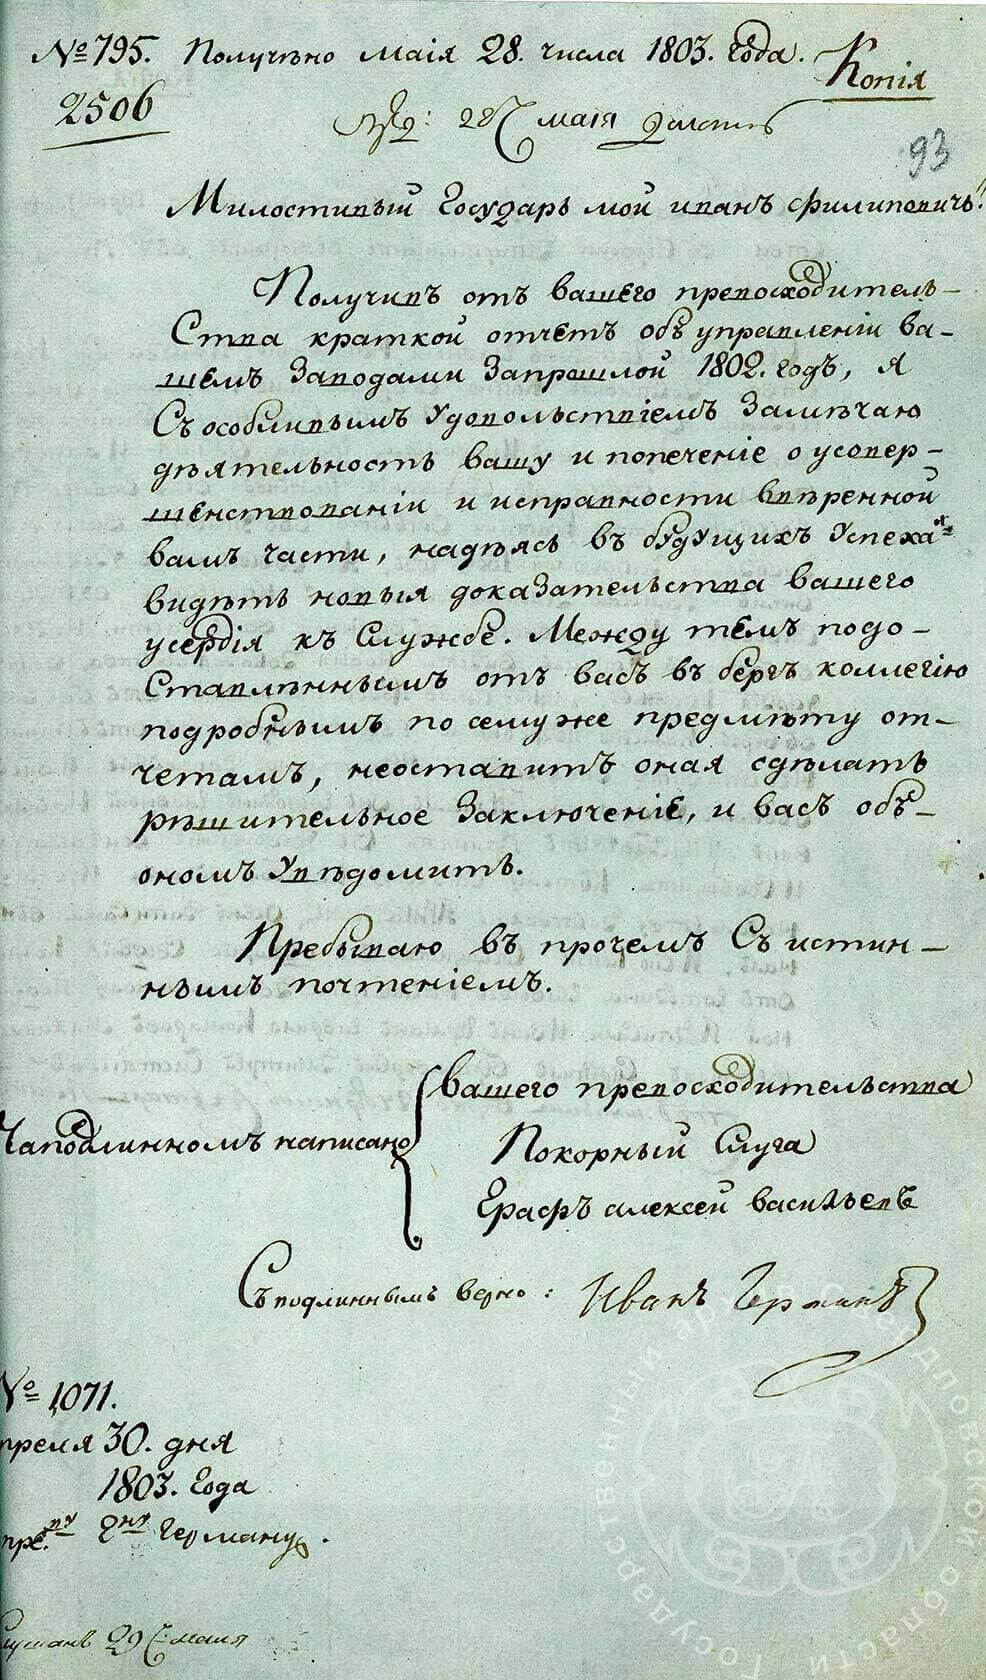 № 795. Получено маія 28. числа 1803. года.
Копія
2506
28 маія
93
Милостивый Государь мой иванъ филиповичь!
Получивъ отъ вашего превосходитель-
Ства краткой отчетъ объ управленіи ва-
шемъ Заводами Запрошлой 1802. годъ, я
Съ особливымъ удовольствіемъ Замѣчаю
дѣятельность вашу и попеченіе о усовер-
шенствованіи и исправности ввѣренной
вамъ части, надѣясь въ будущихъ успехахъ
видѣть новыя доказательства вашего
усердія къ Службе. Между темъ подо-
Ставлѣннымъ отъ васъ въ бергъ коллегію
подробнымъ по семуже предмѣту от-
четамъ, неоставитъ оная сдѣлать
рѣшительное Заключеніе, и васъ объ-
ономъ увѣдомить.
Пребываю въ прочемъ Съ истин-
нымъ почтеніемъ.
вашего превосходительства
Наподлинномъ написано
Покорный Слуга
Графъ алексей васильевъ
Съ подлиннымъ верно: Иванъ Германъ
№ 1071.
преля 30. дня
1803. Года
пре.ву Гну Герману.
29 маия
Государственный архив Свердловской области